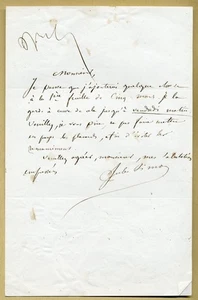 Monsieur,
Je pense que j'ajouterai quelque chose
à la 1re feuille de Cinq
garde à jusqu'à vendredi matin
Veuillez, je vous prie ne pas faire mettre
en pages les placards, afin d'éviter les
remaniements
Veuillez agréer, monsieur, mes salutations
empressées
Jules Simon